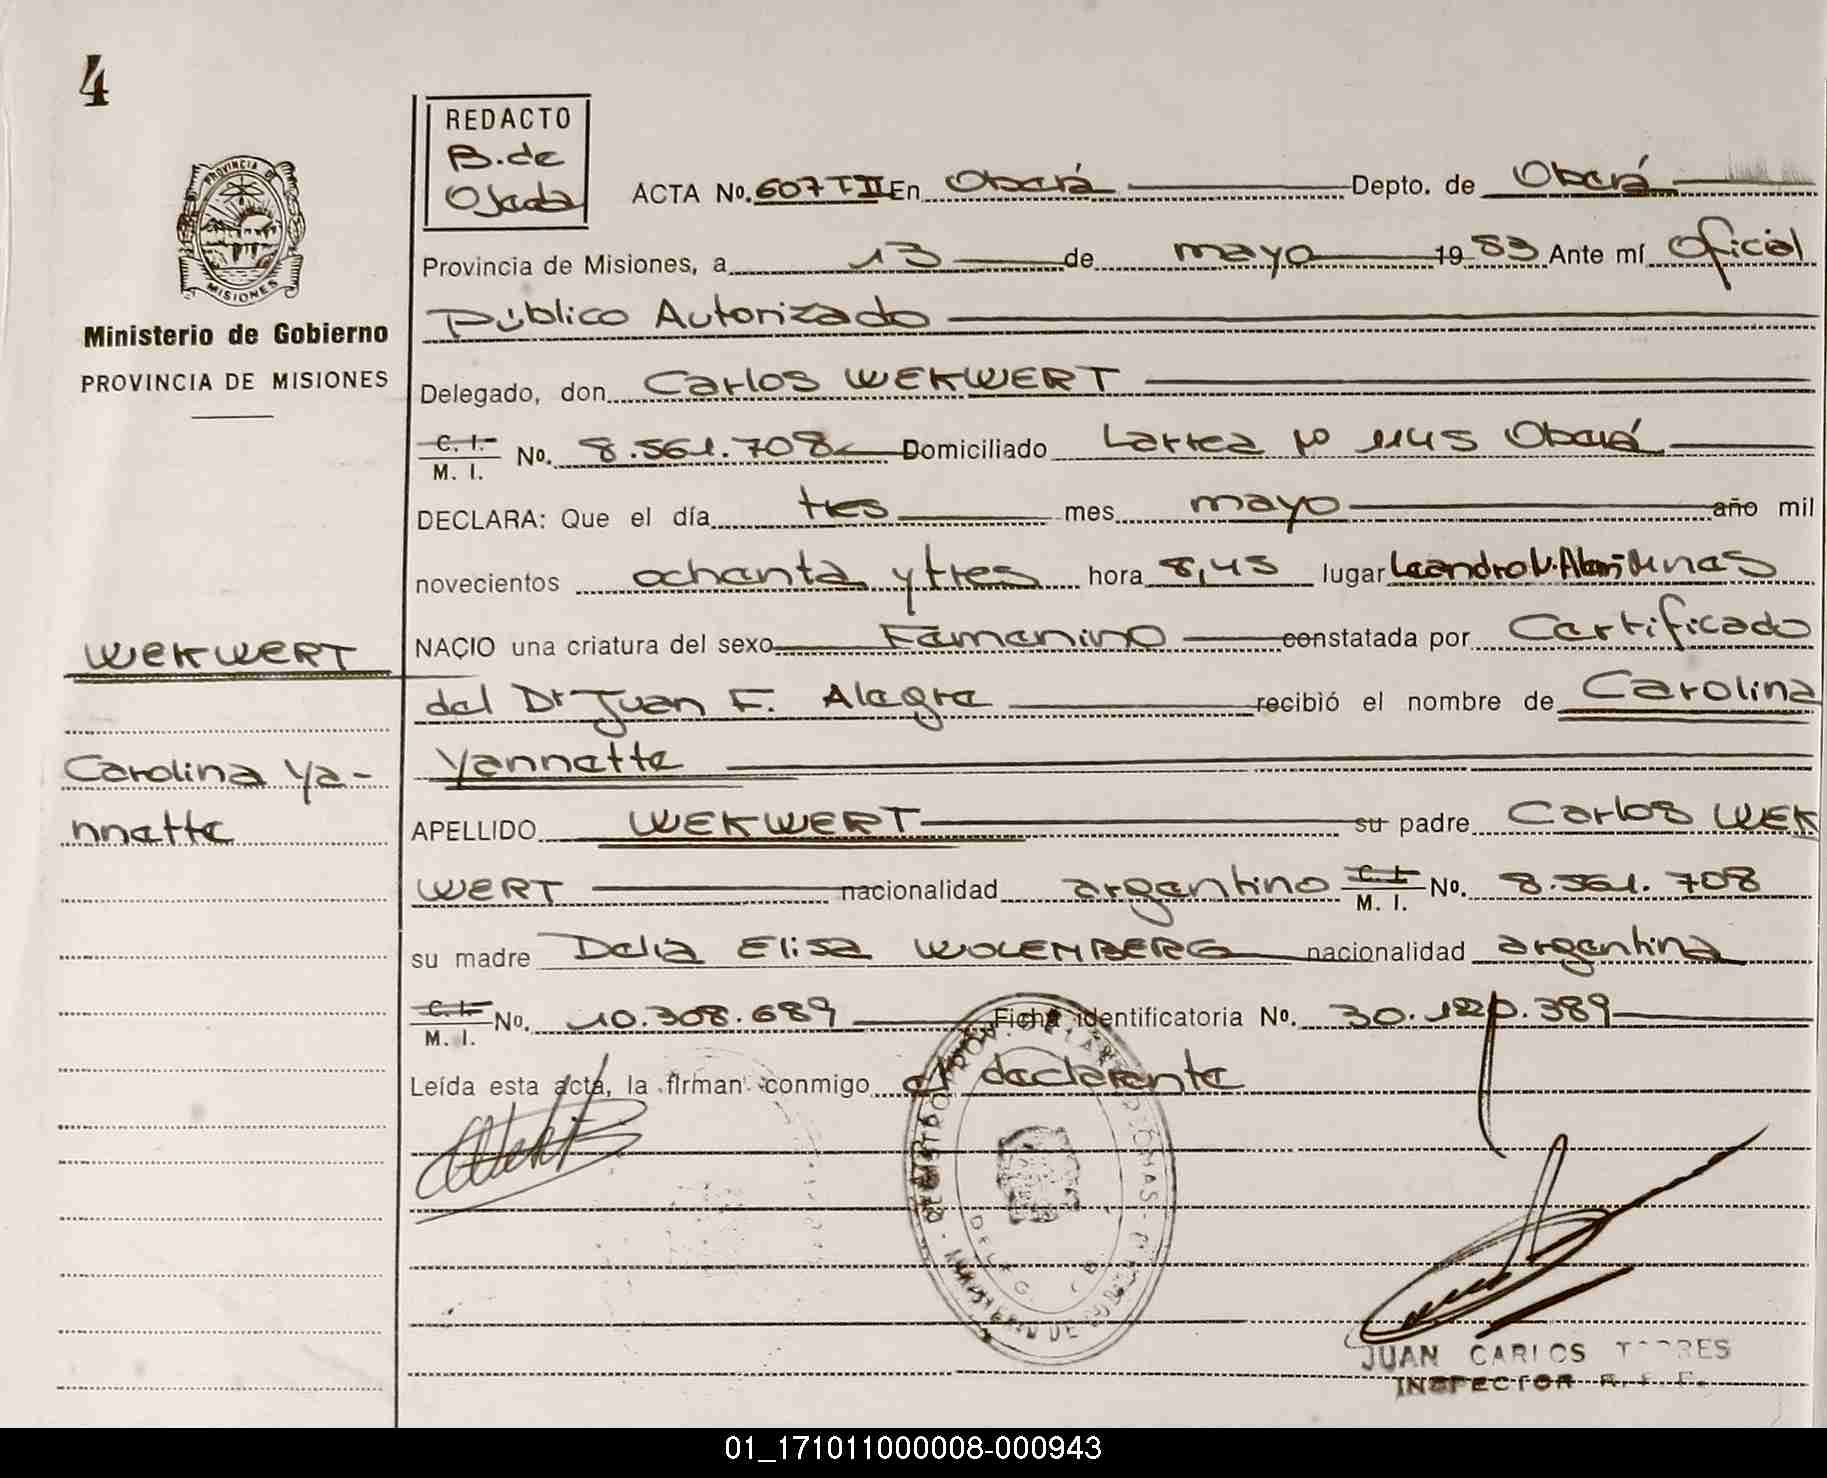 4
REDACTO
B. de
Ojeda
PROVINCIA DE
MISIONES
Ministerio de Gobierno
PROVINCIA DE MISIONES
ACTA No. 607 T II En Oberá Depto. de Oberá
Provincia de Misiones, a 13 de mayo 1983 Ante mí Oficial
Público Autorizado
Delegado, don Carlos WEKWERT
C. I.
M. I. No. 8.561.708 Domiciliado Larrea Nº 1145 Oberá
DECLARA: Que el día tres mes mayo año mil
novecientos ochenta y tres hora 8,45 lugar Leandro N. Alem Mnes
NACIO una criatura del sexo Femenino constatada por Certificado
WEKWERT
del Dr Juan F. Alegre recibió el nombre de Carolina
Yannette
Carolina Ya-
nnette
APELLIDO WEKWERT su padre Carlos WEK
WERT nacionalidad argentino C. I. M. I. No. 8.561.708
su madre Delia Elisa WOLEMBERG nacionalidad argentina
C. I.
M. I. No. 10.308.689 Ficha identificatoria No. 30.120.389
Leída esta acta, la firman conmigo el declarante
JUAN CARLOS TORRES
INSPECTOR
01_171011000008-000943